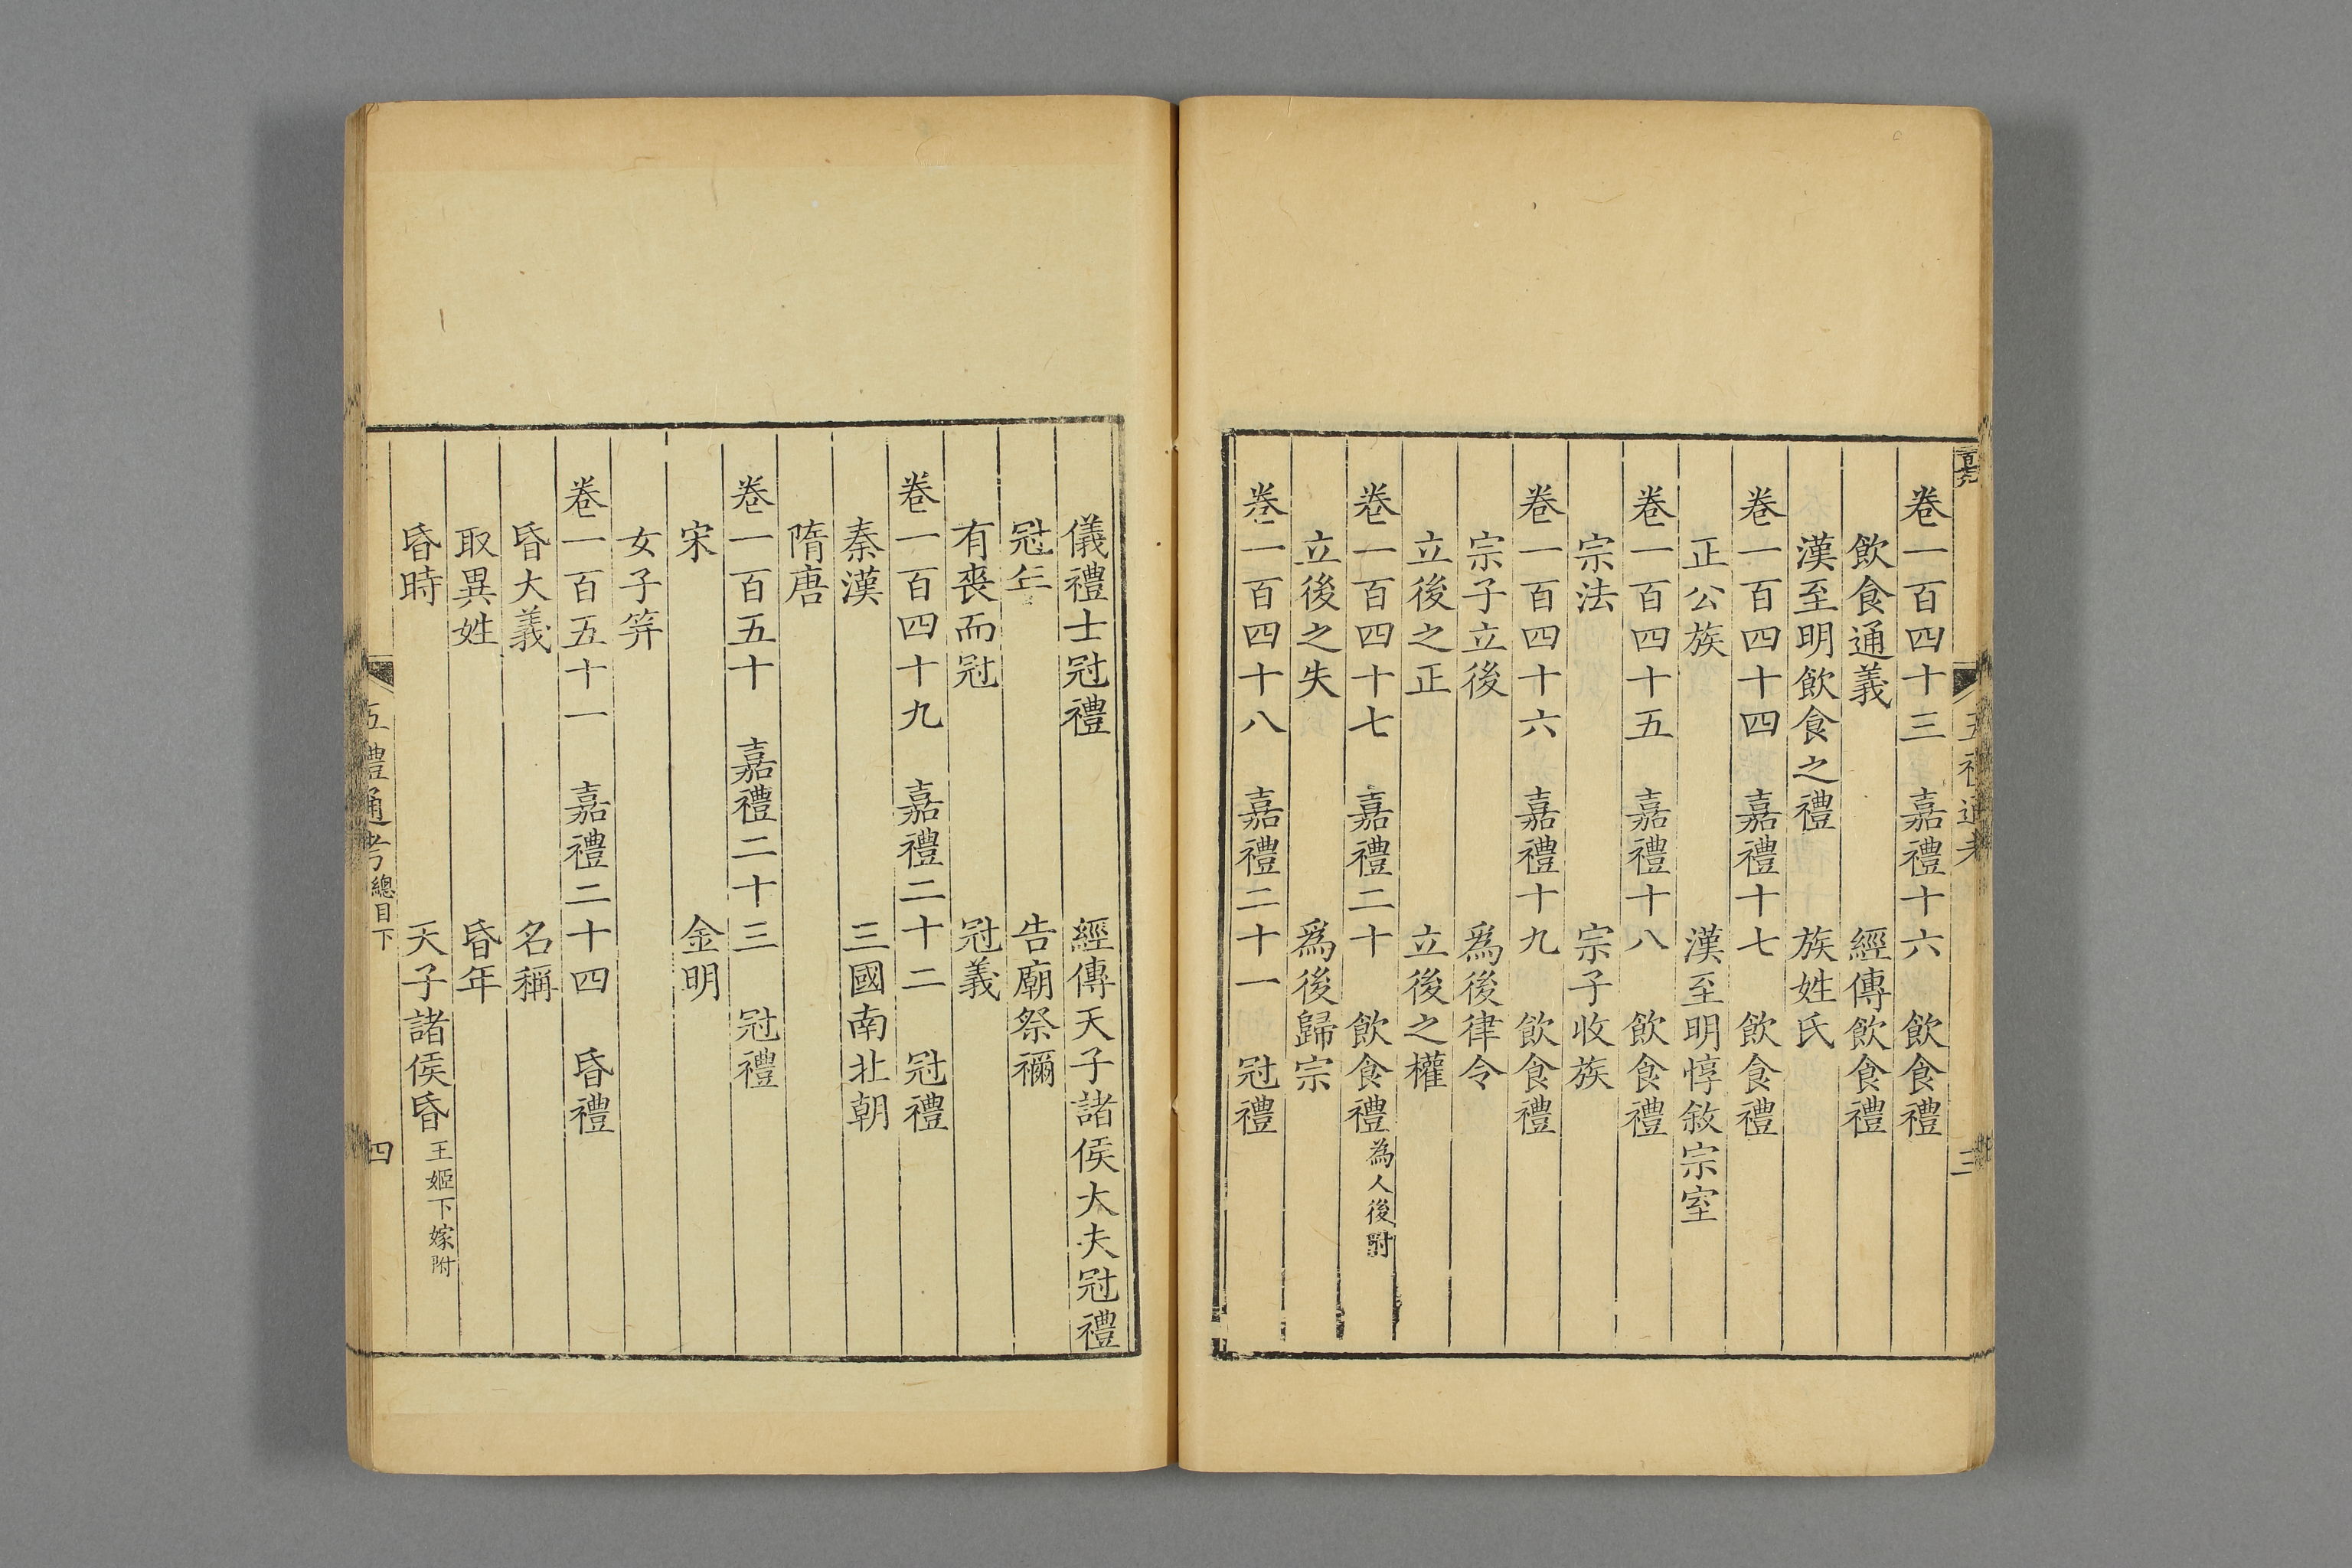 卷一百四十三　嘉禮十六　飲食禮
飲食通義　經傳飲食禮
漢至明飲食之禮　族姓氏
卷一百四十四　嘉禮十七　飲食禮
正公族　漢至明惇敘宗室
卷一百四十五　嘉禮十八　飲食禮
宗法　宗子收族
卷一百四十六　嘉禮十九　飲食禮
宗子立後　爲後律令
立後之正　立後之權
卷一百四十七　嘉禮二十　飲食禮為人後附
立後之失　爲後歸宗
卷一百四十八　嘉禮二十一　冠禮
儀禮士冠禮　經傳天子諸侯大夫冠禮
冠年　告廟祭禰
有喪而冠　冠義
卷一百四十九　嘉禮二十二　冠禮
秦漢　三國南北朝
隋唐
卷一百五十　嘉禮二十三　冠禮
宋　金明
女子笄
卷一百五十一　嘉禮二十四　昏禮
昏大義　名稱
取異姓　昏年
昏時　天子諸侯昏王姬下嫁附
五禮通考總目下　四